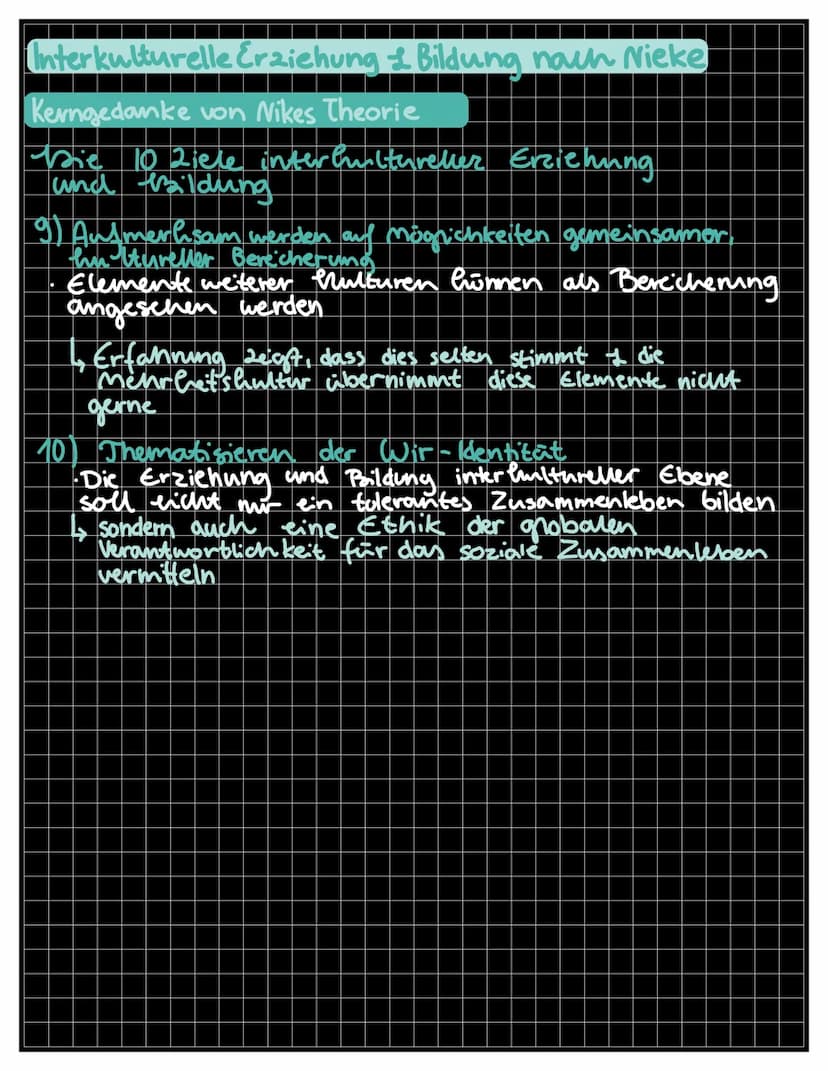 Interkulturelle Erziehung & Bildung nach Nieke
Kerngedanke von Nikes Theorie
Die 10 Ziele interkultureller Erziehung
und Bildung
9) Aufmerksam werden auf Möglichkeiten gemeinsamer,
kultureller Bereicherung
· Elemente weiterer Kulturen können als Bereicherung
angesehen werden
↳ Erfahrung zeigt, dass dies selten stimmt & die
Mehrheitskultur übernimmt diese Elemente nicht
gerne
10) Thematisieren der Wir-Identität
· Die Erziehung und Bildung interkultureller Ebene
soll nicht nur ein tolerantes Zusammenleben bilden
↳ sondern auch eine Ethik der globalen
Verantwortlichkeit für das soziale Zusammenleben
vermitteln